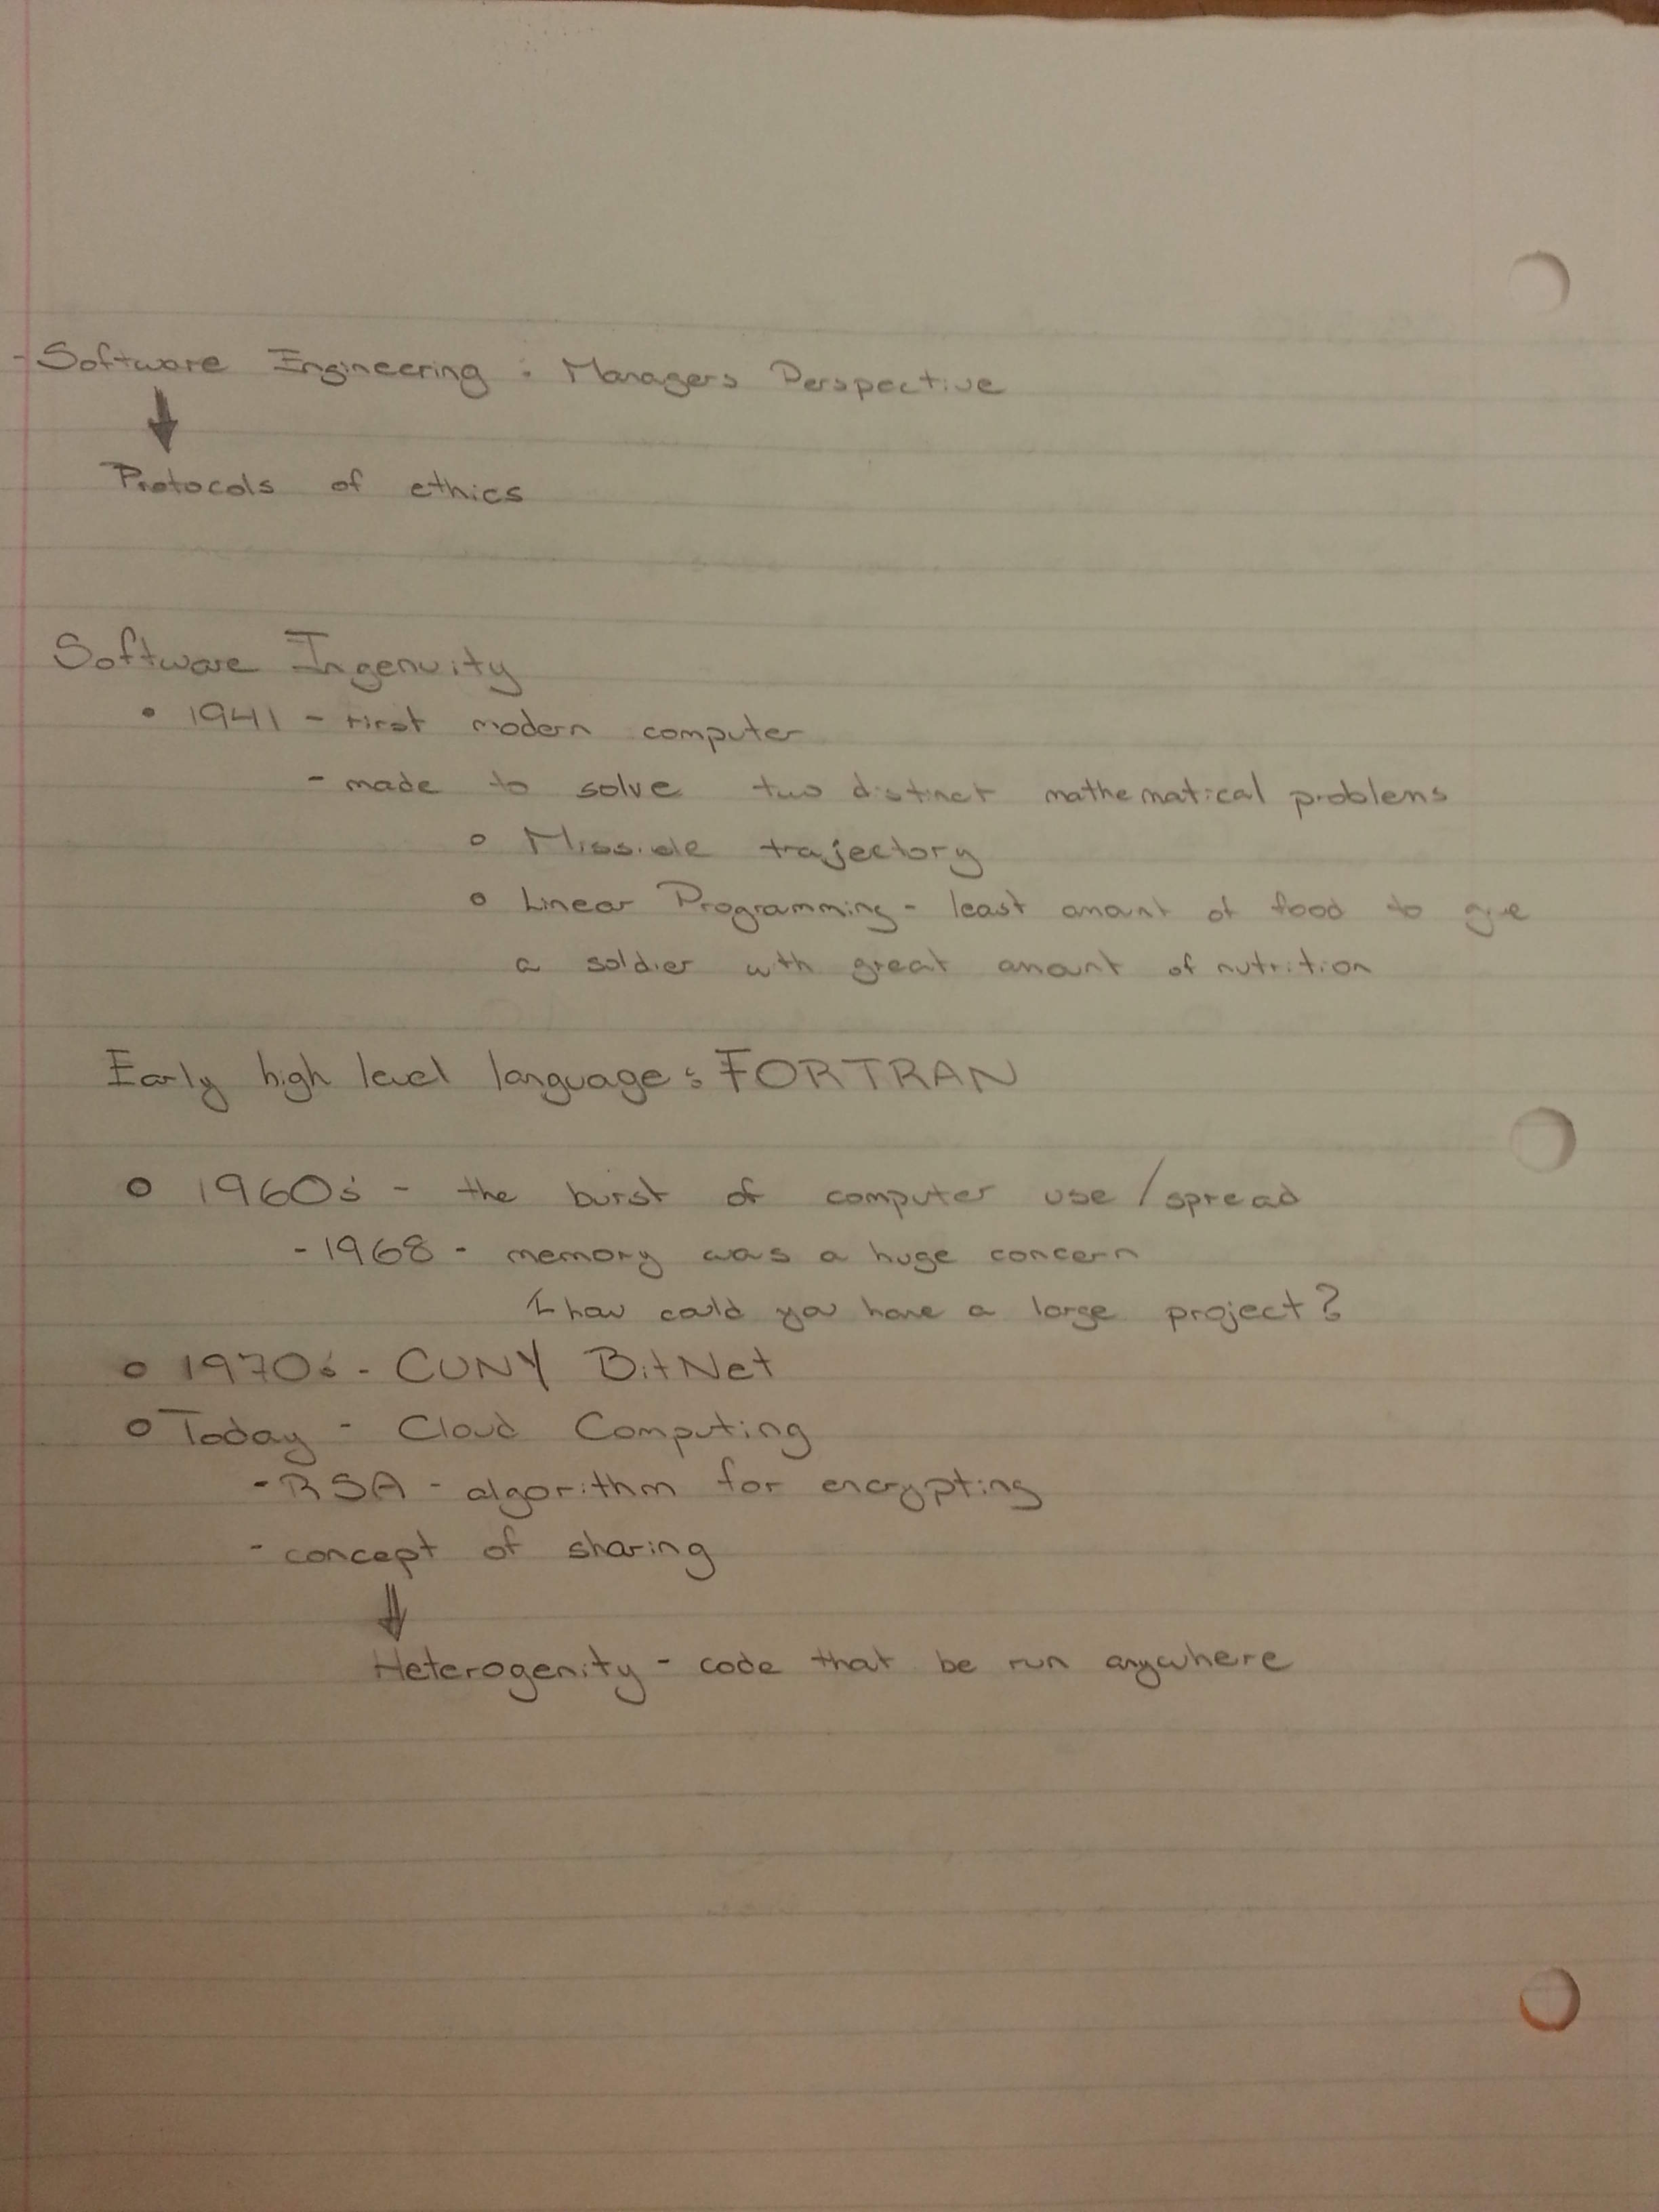 - Software Engineering : Managers Perspective
Protocols of ethics
Software Ingenuity
• 1941 - First modern computer
- made to solve two distinct mathematical problems
o Missile trajectory
o Linear Programming - least amount of food to give
a soldier with great amount of nutrition
Early high level language: FORTRAN
o 1960s - the burst of computer use / spread
- 1968 - memory was a huge concern
how could you have a large project?
o 1970s - CUNY BitNet
o Today - Cloud Computing
- RSA - algorithm for encrypting
- concept of sharing
Heterogenity - code that be run anywhere